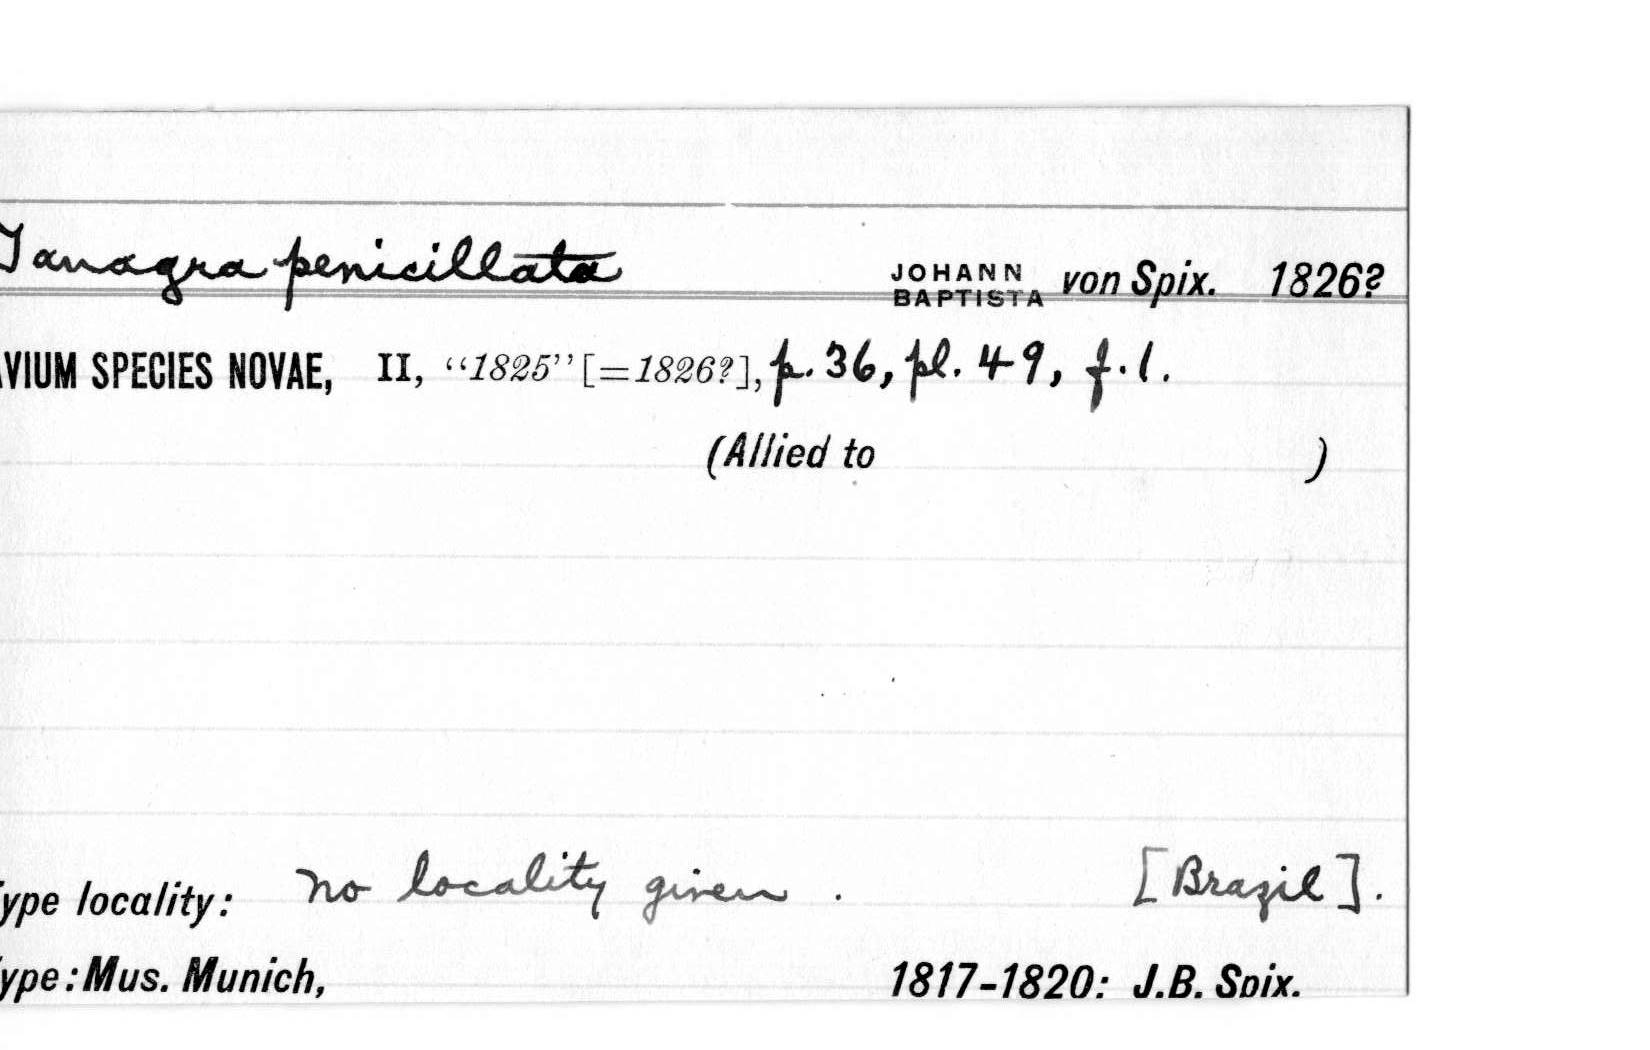 Tanagra penicillata JOHANN BAPTISTA von Spix. 1826?
AVIUM SPECIES NOVAE, II, “1825” [=1826?], p. 36, pl. 49, f. 1.
(Allied to )
Type locality: No locality given . [Brazil].
Type: Mus. Munich, 1817-1820: J.B. Spix.